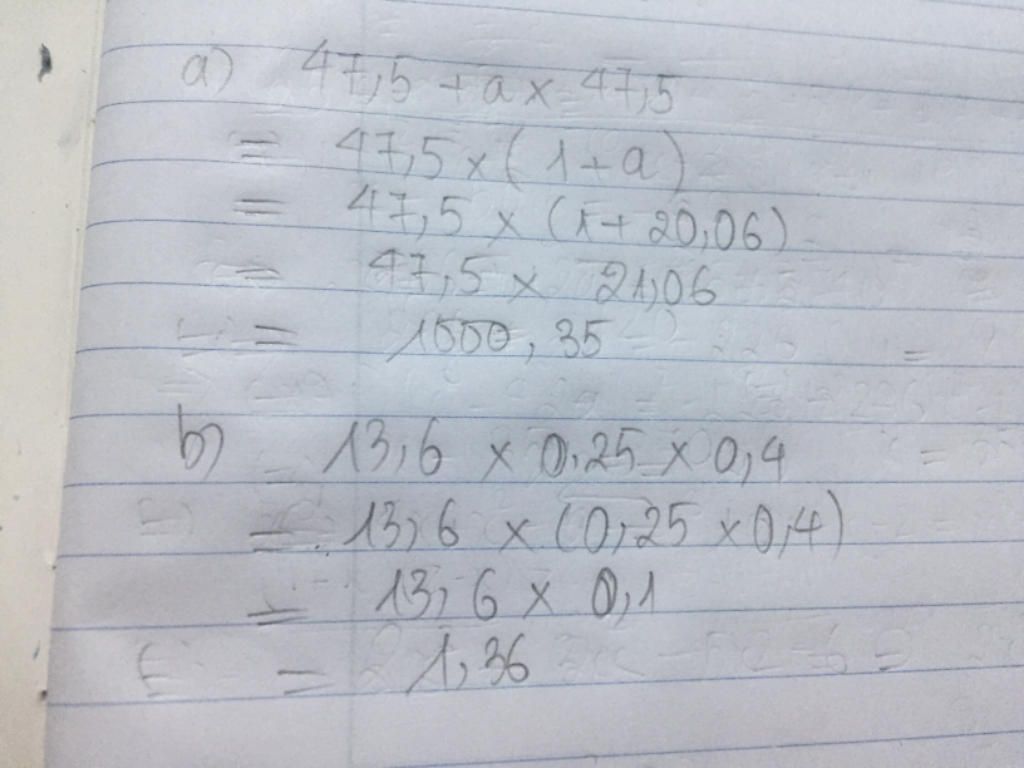 a) 47,5 + a x 47,5
= 47,5 x ( 1 + a )
= 47,5 x (1 + 20,06)
= 47,5 x 21,06
= 1000, 35
b) 13,6 x 0,25 x 0,4
= 13,6 x (0,25 x 0,4)
= 13,6 x 0,1
= 1,36